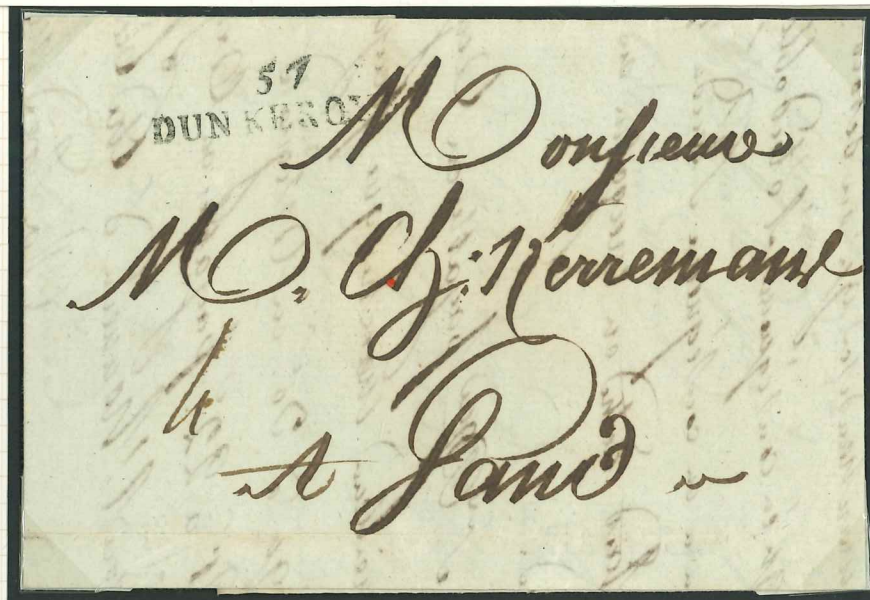 57
DUNKERQ
Monsieur
M. Ch: Kerremans
4
A Gand